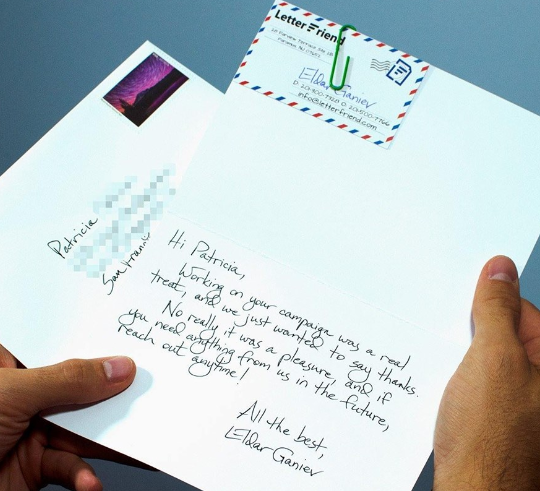 LetterFriend
Paramus, NJ 07652
Eldar Ganiev
info@letterfriend.com
Patricia
San Franci
Hi Patricia,
Working on your campaign was a real
treat, and we just wanted to say thanks.
No really it was a pleasure, and if
you need anything from us in the future,
reach out anytime!
All the best,
Eldar Ganiev